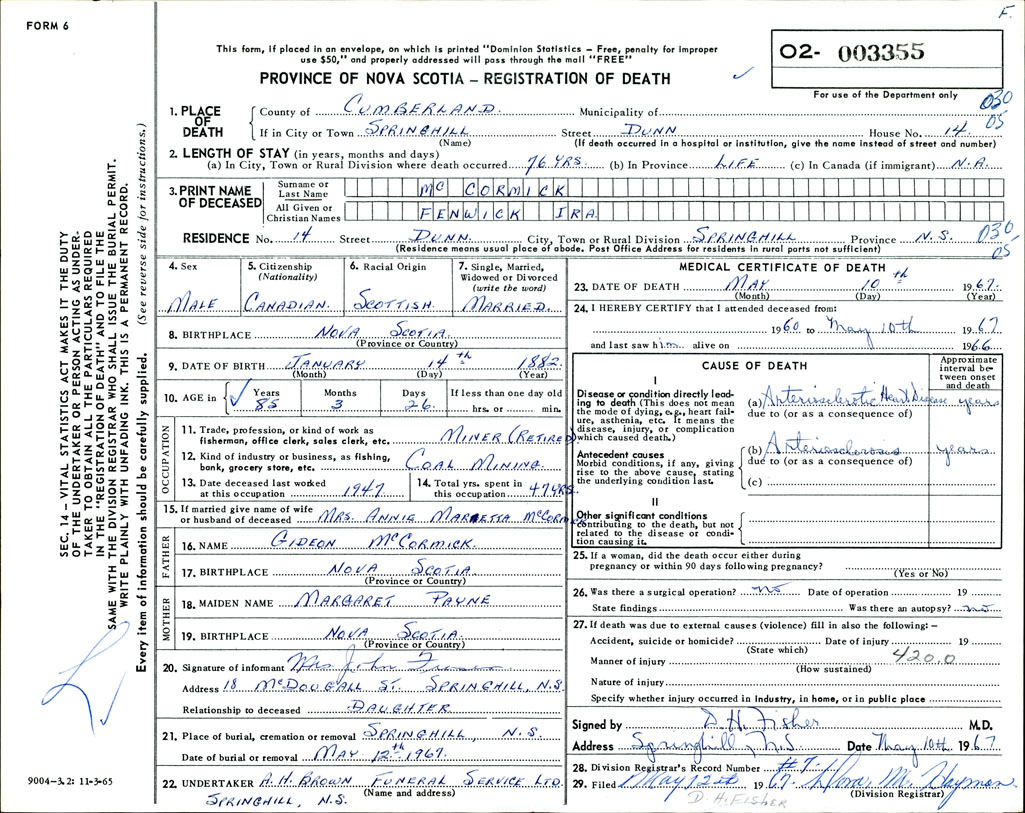 F.
FORM 6
This form, if placed in an envelope, on which is printed "Dominion Statistics – Free, penalty for improper
use $50," and properly addressed will pass through the mail "FREE"
PROVINCE OF NOVA SCOTIA – REGISTRATION OF DEATH
02- 003355
For use of the Department only
030
05
1. PLACE OF DEATH
County of CUMBERLAND. Municipality of
If in City or Town SPRINGHILL Street DUNN House No. 14.
(Name) (If death occurred in a hospital or institution, give the name instead of street and number)
2. LENGTH OF STAY (in years, months and days)
(a) In City, Town or Rural Division where death occurred 76 YRS. (b) In Province LIFE (c) In Canada (if immigrant) N.A.
3. PRINT NAME OF DECEASED
Surname or Last Name MCCORMICK
All Given or Christian Names FENWICK IRA
RESIDENCE No. 14 Street DUNN. City, Town or Rural Division SPRINGHILL Province N.S.
(Residence means usual place of abode. Post Office Address for residents in rural parts not sufficient)
030
05
4. Sex
MALE
5. Citizenship
(Nationality)
CANADIAN.
6. Racial Origin
SCOTTISH.
7. Single, Married,
Widowed or Divorced
(write the word)
MARRIED.
8. BIRTHPLACE NOVA SCOTIA.
(Province or Country)
9. DATE OF BIRTH JANUARY 14th 1882.
(Month) (Day) (Year)
10. AGE in Years Months Days If less than one day old
85 3 26. hrs. or min.
OCCUPATION
11. Trade, profession, or kind of work as
fisherman, office clerk, sales clerk, etc. MINER (RETIRED)
12. Kind of industry or business, as fishing,
bank, grocery store, etc. COAL MINING.
13. Date deceased last worked
at this occupation 1947
14. Total yrs. spent in
this occupation 47 YRS.
15. If married give name of wife
or husband of deceased MRS. ANNIE MARETTA MCCORMICK
FATHER
16. NAME GIDEON MCCORMICK.
17. BIRTHPLACE NOVA SCOTIA.
(Province or Country)
MOTHER
18. MAIDEN NAME MARGARET PAYNE
19. BIRTHPLACE NOVA SCOTIA.
(Province or Country)
20. Signature of informant Mrs John
Address 18 MCDOUGALL ST. SPRINGHILL, N.S.
Relationship to deceased DAUGHTER
21. Place of burial, cremation or removal SPRINGHILL, N.S.
Date of burial or removal MAY 12th 1967.
22. UNDERTAKER A.H. BROWN FUNERAL SERVICE LTD.
(Name and address)
SPRINGHILL, N.S.
MEDICAL CERTIFICATE OF DEATH
23. DATE OF DEATH MAY 10th 1967.
(Month) (Day) (Year)
24. I HEREBY CERTIFY that I attended deceased from:
1960 to May 10th 1967
and last saw him alive on 1966
CAUSE OF DEATH
Approximate
interval be-
tween onset
and death
I
Disease or condition directly lead-
ing to death (This does not mean
the mode of dying, e.g., heart fail-
ure, asthenia, etc. It means the
disease, injury, or complication
which caused death.)
(a) Arteriosclerotic Heart Disease years
due to (or as a consequence of)
Antecedent causes
Morbid conditions, if any, giving
rise to the above cause, stating
the underlying condition last.
(b) Arteriosclerosis years
due to (or as a consequence of)
(c)
II
Other significant conditions
contributing to the death, but not
related to the disease or condi-
tion causing it.
25. If a woman, did the death occur either during
pregnancy or within 90 days following pregnancy?
(Yes or No)
26. Was there a surgical operation? no Date of operation 19
State findings Was there an autopsy? no
27. If death was due to external causes (violence) fill in also the following: –
Accident, suicide or homicide? Date of injury 19
(State which)
420.0
Manner of injury
(How sustained)
Nature of injury
Specify whether injury occurred in industry, in home, or in public place
Signed by D. H. Fisher M.D.
Address Springhill, N.S. Date May 10th 1967
28. Division Registrar's Record Number #7
29. Filed May 12th 1967.
(Division Registrar)
D.H. FISHER
SEC. 14 – VITAL STATISTICS ACT MAKES IT THE DUTY
OF THE UNDERTAKER OR PERSON ACTING AS UNDER-
TAKER TO OBTAIN ALL THE PARTICULARS REQUIRED
IN THE "REGISTRATION OF DEATH" AND TO FILE THE
SAME WITH THE DIVISION REGISTRAR WHO SHALL ISSUE THE BURIAL PERMIT.
WRITE PLAINLY WITH UNFADING INK. THIS IS A PERMANENT RECORD.
Every item of information should be carefully supplied. (See reverse side for instructions.)
9004–3.2: 11-3-65